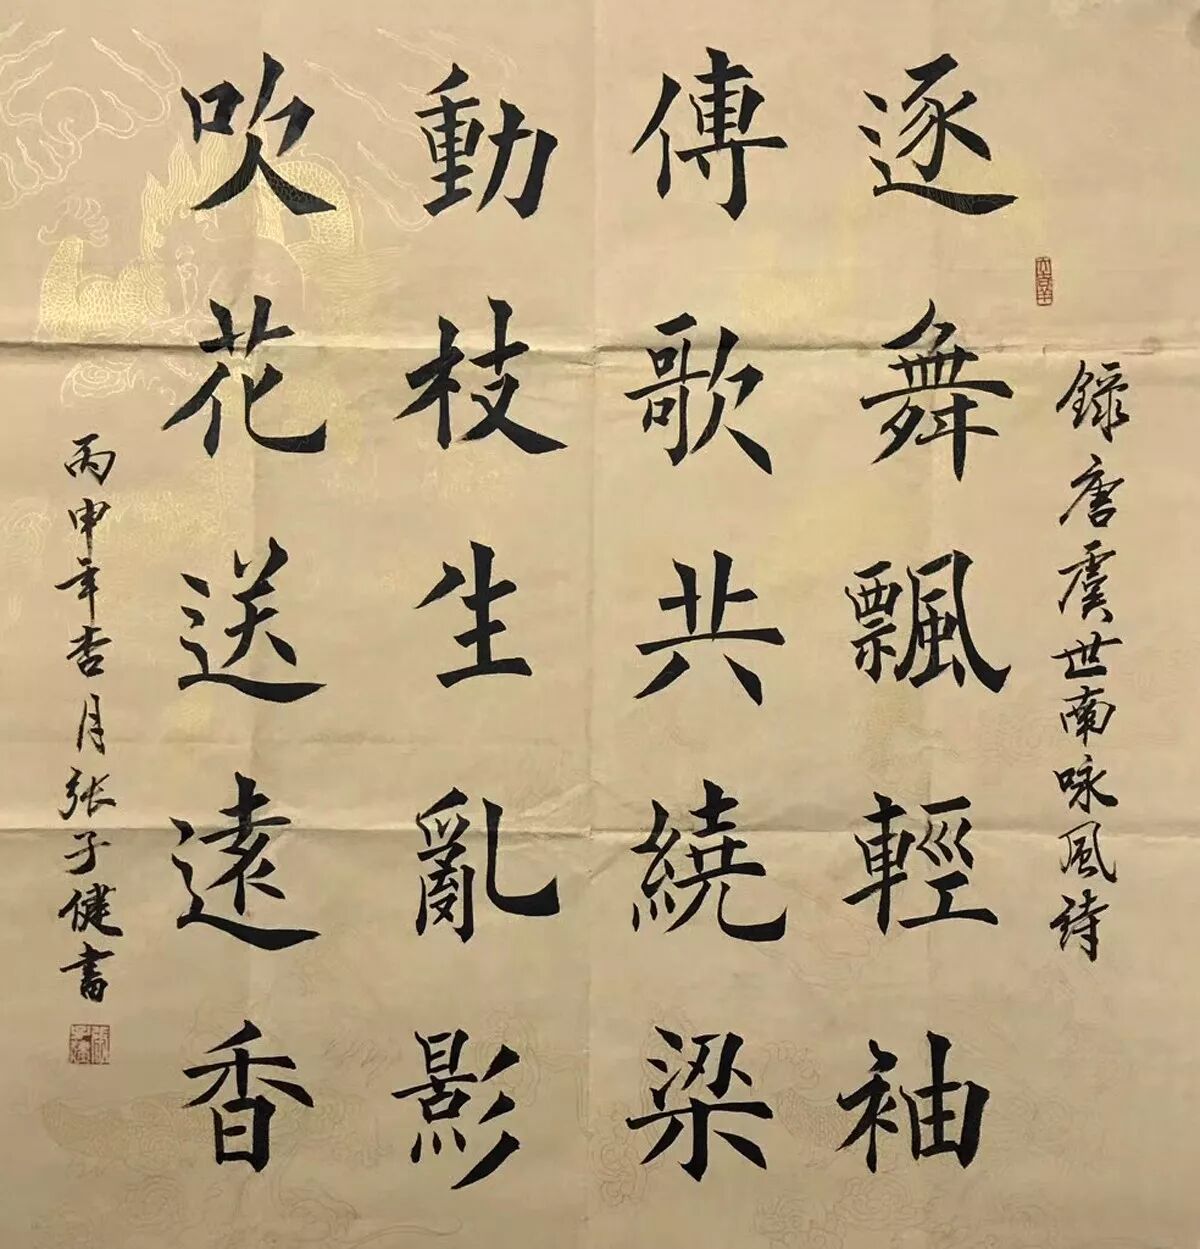 錄唐虞世南咏風詩
逐舞飄輕袖
傳歌共繞梁
動枝生亂影
吹花送遠香
丙申年杏月张子健書